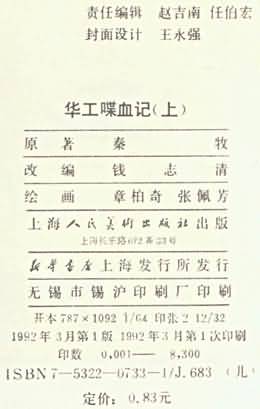 责任编辑 赵吉南 任伯宏
封面设计 王永强
华工喋血记(上)
原著 秦牧
改编 钱志清
绘画 章柏奇 张佩芳
上海人民美术出版社出版
上海长乐路672弄33号
新华书店上海发行所发行
无锡市锡沪印刷厂印刷
开本787×1092 1/64 印张2 12/32
1992年3月第1版 1992年3月第1次印刷
印数 0,001— 8,300
ISBN7—5322—0733—1/J.683 (儿)
定价: 0.83元